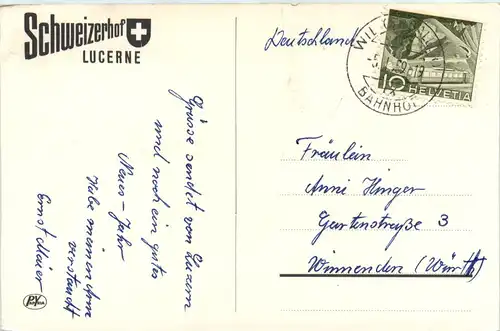 Schweizerhof
LUCERNE
Grüsse sendet von Luzern
und noch ein gutes
Neues-Jahr
Habe meinen Arm
verstaucht
Ernst Maier
Deutschland
BAHNHOF
10 HELVETIA
Fräulein
Anni Hinger
Gartenstraße 3
Winnenden (Württ)